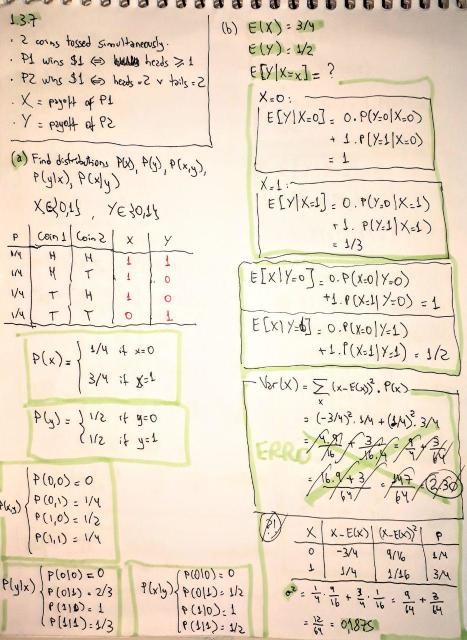 1.3.7
· 2 coins tossed simultaneously.
· P1 wins $1 ⇔ heads ≥ 1
· P2 wins $1 ⇔ heads = 2 v tails = 2
· X = payoff of P1
· Y = payoff of P2
(a) Find distributions P(x), P(y), P(x,y),
P(y|x), P(x|y)
X∈{0,1} , Y∈{0,1}
P Coin 1 Coin 2 X Y
1/4 H H 1 1
1/4 H T 1 0
1/4 T H 1 0
1/4 T T 0 1
P(x) = { 1/4 if x=0
3/4 if x=1
P(y) = { 1/2 if y=0
1/2 if y=1
P(x,y) { P(0,0) = 0
P(0,1) = 1/4
P(1,0) = 1/2
P(1,1) = 1/4
P(y|x) { P(0|0) = 0
P(0|1) = 2/3
P(1|0) = 1
P(1|1) = 1/3
P(x|y) { P(0|0) = 0
P(0|1) = 1/2
P(1|0) = 1
P(1|1) = 1/2
(b) E(X) = 3/4
E(Y) = 1/2
E[Y|X=x] = ?
X=0:
E[Y|X=0] = 0.P(Y=0|X=0)
+ 1.P(Y=1|X=0)
= 1
X=1:
E[Y|X=1] = 0.P(Y=0|X=1)
+ 1. P(Y=1|X=1)
= 1/3
E[X|Y=0] = 0.P(X=0|Y=0)
+1.P(X=1|Y=0) = 1
E[X|Y=1] = 0.P(X=0|Y=1)
+ 1.P(X=1|Y=1) = 1/2
Var(X) = ∑ (x-E(x))². P(x)
x
= (-3/4)². 1/4 + (1/4)². 3/4
ERRO
= 16.9 + 3 / 64 = 147 / 64 = 2,30
X X-E(X) (X-E(X))² P
0 -3/4 9/16 1/4
1 1/4 1/16 3/4
σ² = 1/4 . 9/16 + 3/4 . 1/16 = 9/64 + 3/64
= 12/64 = 0.1875